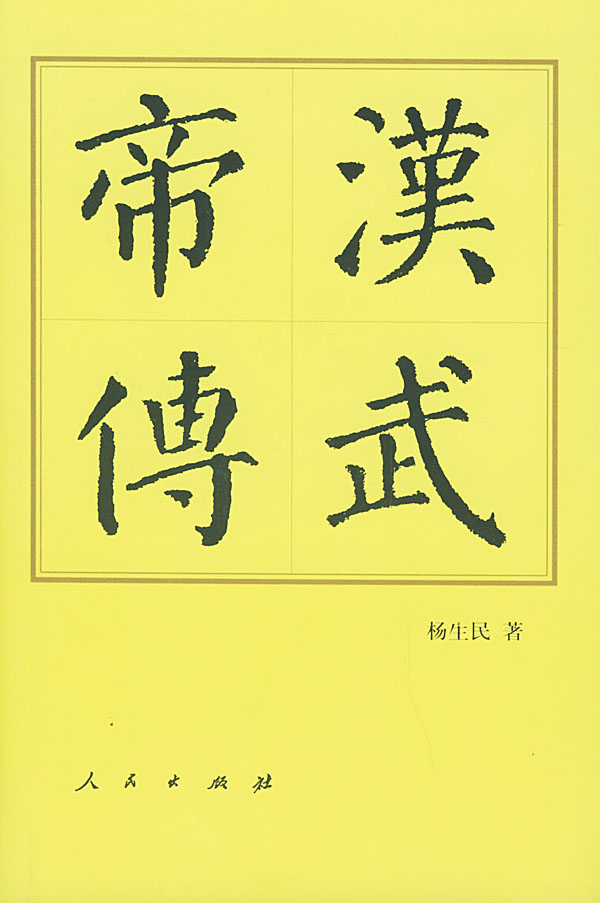 漢武
帝傳
杨生民 著
人民出版社